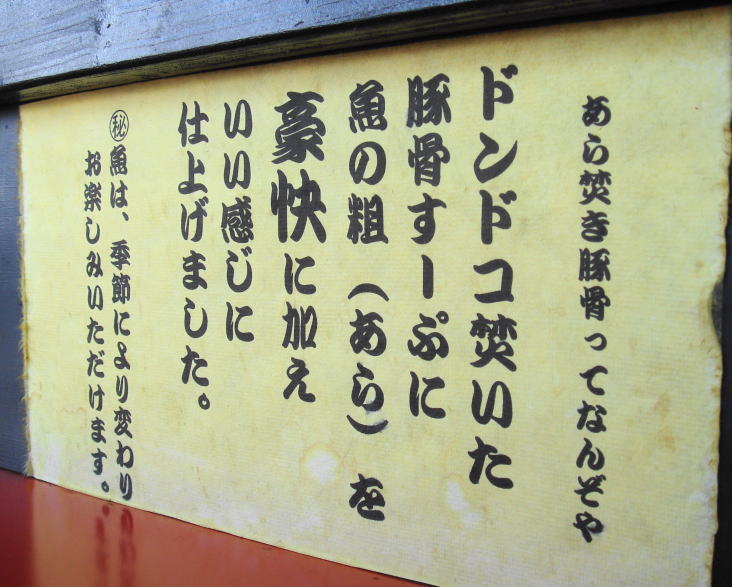 あら焚き豚骨ってなんぞや
ドンドコ焚いた
豚骨すーぷに
魚の粗（あら）を
豪快に加え
いい感じに
仕上げました。
㊙魚は、季節により変わり
お楽しみいただけます。